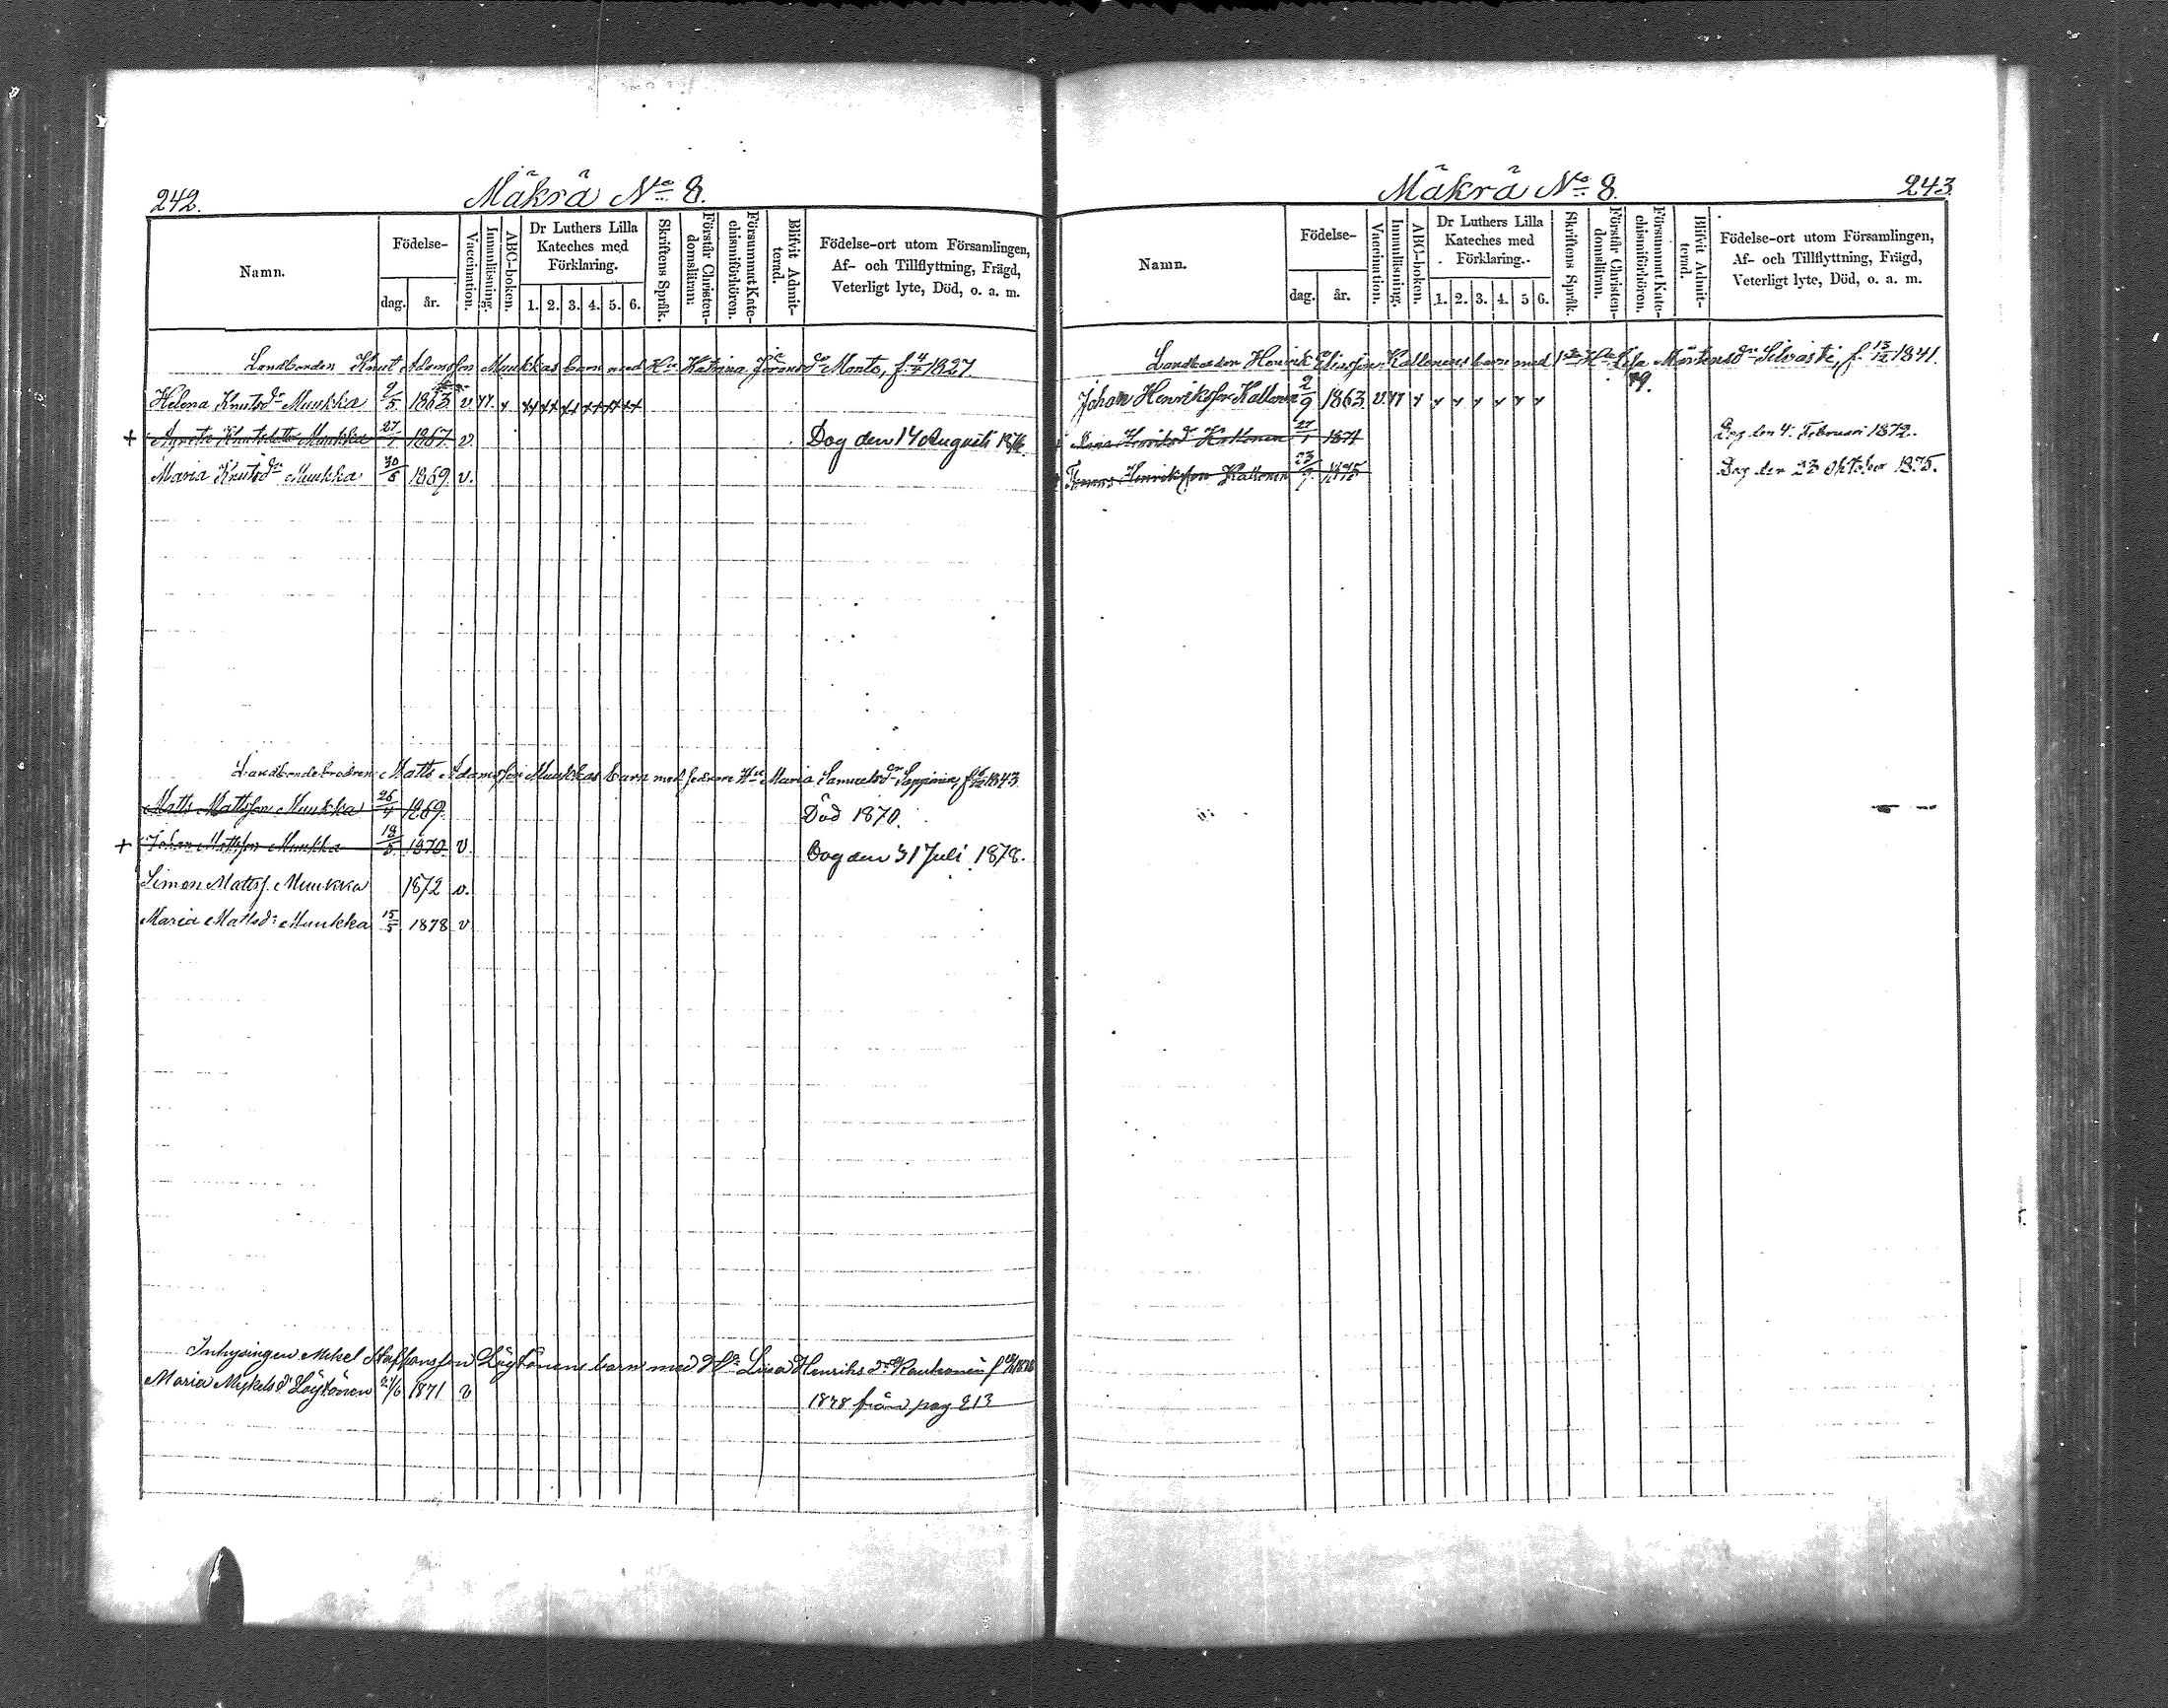 242.
Mäkrä No 8.
Namn.
Födelse-
dag. år.
Vaccination.
Innanläsning.
ABC-boken.
Dr Luthers Lilla
Kateches med
Förklaring.
1. 2. 3. 4. 5. 6.
Skriftens Språk.
Förstår Christen-
domsläran:
Försummat Kate-
chismiförhören.
Blifvit Admit-
terad.
Födelse-ort utom Församlingen,
Af- och Tillflyttning, Frägd,
Veterligt lyte, Död, o. a. m.
Landbonden Knut Adamsson Muukkas barn med Hu Katrina Jöransdr Monto, f. 4/2 1827.
Helena Knutsdr Muukka 2/5 1863. v.
+ Agneta Knutsdotter Muukka 27 1867. v. Dog den 14 Augusti
Maria Knutsdr Muukka 30/5 1869. v.
Landbondebrodren Matts Adamsson Muukkas barn med Hu Maria Samuelsdr 1843
Matts Mattsson Muukka 26/4 1869. Död 1870.
+ Johan Mattsson Muukka 19/5 1870. v. Dog den 31 Juli 1878.
Simon Mattss. Muukka 1872 v.
Maria Mattsd: Muukka 15/5 1878 v
Inhysingen Mikel Staffansson Löytönens barn med Hu Liisa Henriks dr
Maria Mikelsdr Löytönen 1871 v 1878 från pag 213
Mäkrä No 8. 243.
Namn.
Födelse-
dag. år.
Vaccination.
Innanläsning.
ABC-boken.
Dr Luthers Lilla
Kateches med
Förklaring.
1. 2. 3. 4. 5 6.
Skriftens Språk.
Förstår Christen-
domsläran.
Försummat Kate-
chismiförhören.
Blifvit Admit-
terad.
Födelse-ort utom Församlingen,
Af- och Tillflyttning, Frägd,
Veterligt lyte, Död, o. a. m.
Landbonden Henrik Eliasson Kallonens barn med 1sta Hu Lisa Mårtensdr Silvasti, f. 13/12 1841.
79.
Johan Henriksson Kallonen 2/9 1863. v.
Henriksdr Kallonen 27/1 1871 Dog den 4. Februari 1872.
Henriksson Kallonen 23/9 1875 Dog den 23 Oktober 1875.